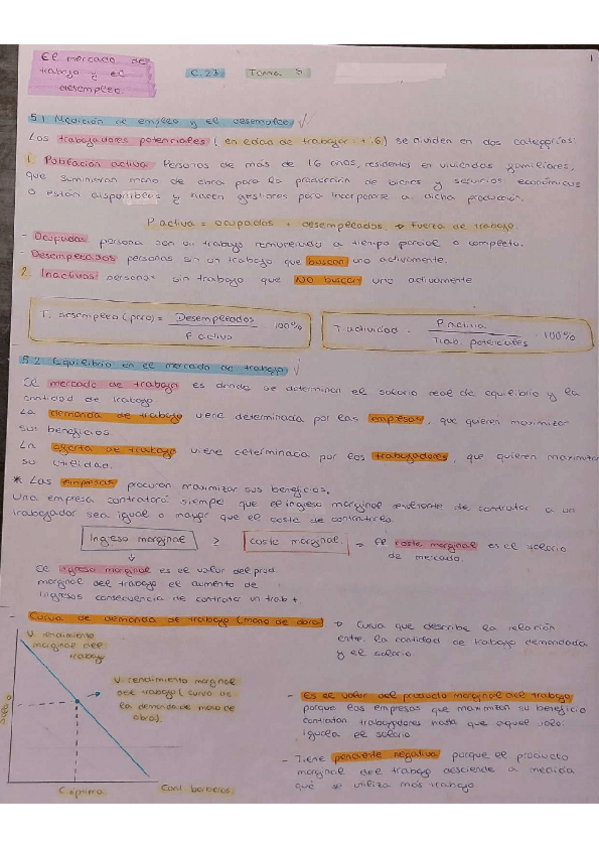 El mercado del
trabajo y el
desempleo.
C.23
Tema 5
1
5.1 Medición de empleo y el desempleo
Los trabajadores potenciales (en edad de trabajar: + 16) se dividen en dos categorías:
1. Población activa: Personas de más de 16 años, residentes en viviendas familiares,
que suministran mano de obra para la producción de bienes y servicios económicos
o están disponibles y hacen gestiones para incorporarse a dicha producción.
P. activa = ocupados + desempleados → Fuerza de trabajo
- Ocupados: persona con un trabajo remunerado a tiempo parcial o completo.
- Desempleados: personas sin un trabajo que buscan uno activamente.
2. Inactivos: personas sin trabajo que NO buscan uno activamente
T. desempleo (paro) = Desempleados / P. activa · 100%
T. actividad = P. activa / Trab. potenciales · 100%
5.2 Equilibrio en el mercado de trabajo
El mercado de trabajo es donde se determinan el salario real de equilibrio y la
cantidad de trabajo.
La demanda de trabajo viene determinada por las empresas, que quieren maximizar
sus beneficios.
La oferta de trabajo viene determinada por los trabajadores, que quieren maximizar
su utilidad.
* Las empresas procuran maximizar sus beneficios.
Una empresa contratará siempre que el ingreso marginal de contratar a un
trabajador sea igual o mayor que el coste de contratarlo.
Ingreso marginal ≥ coste marginal. → El coste marginal es el salario
de mercado.
El ingreso marginal es el valor del prod.
marginal del trabajo el aumento de
ingresos consecuencia de contratar un trab +.
- Curva de demanda de trabajo (mano de obra) → Curva que describe la relación
entre la cantidad de trabajo demandada
y el salario.
V. rendimiento
marginal del
trabajo
V. rendimiento marginal
del trabajo (curva de
la demanda de mano de
obra).
Salario
- Es el valor del producto marginal del trabajo
porque las empresas que maximizan su beneficio
contratan trabajadores hasta que aquel valor
iguala el salario
- Tiene pendiente negativa porque el producto
marginal del trabajo desciende a medida
que se utiliza más trabajo
C. óptima
Cant. barberos.